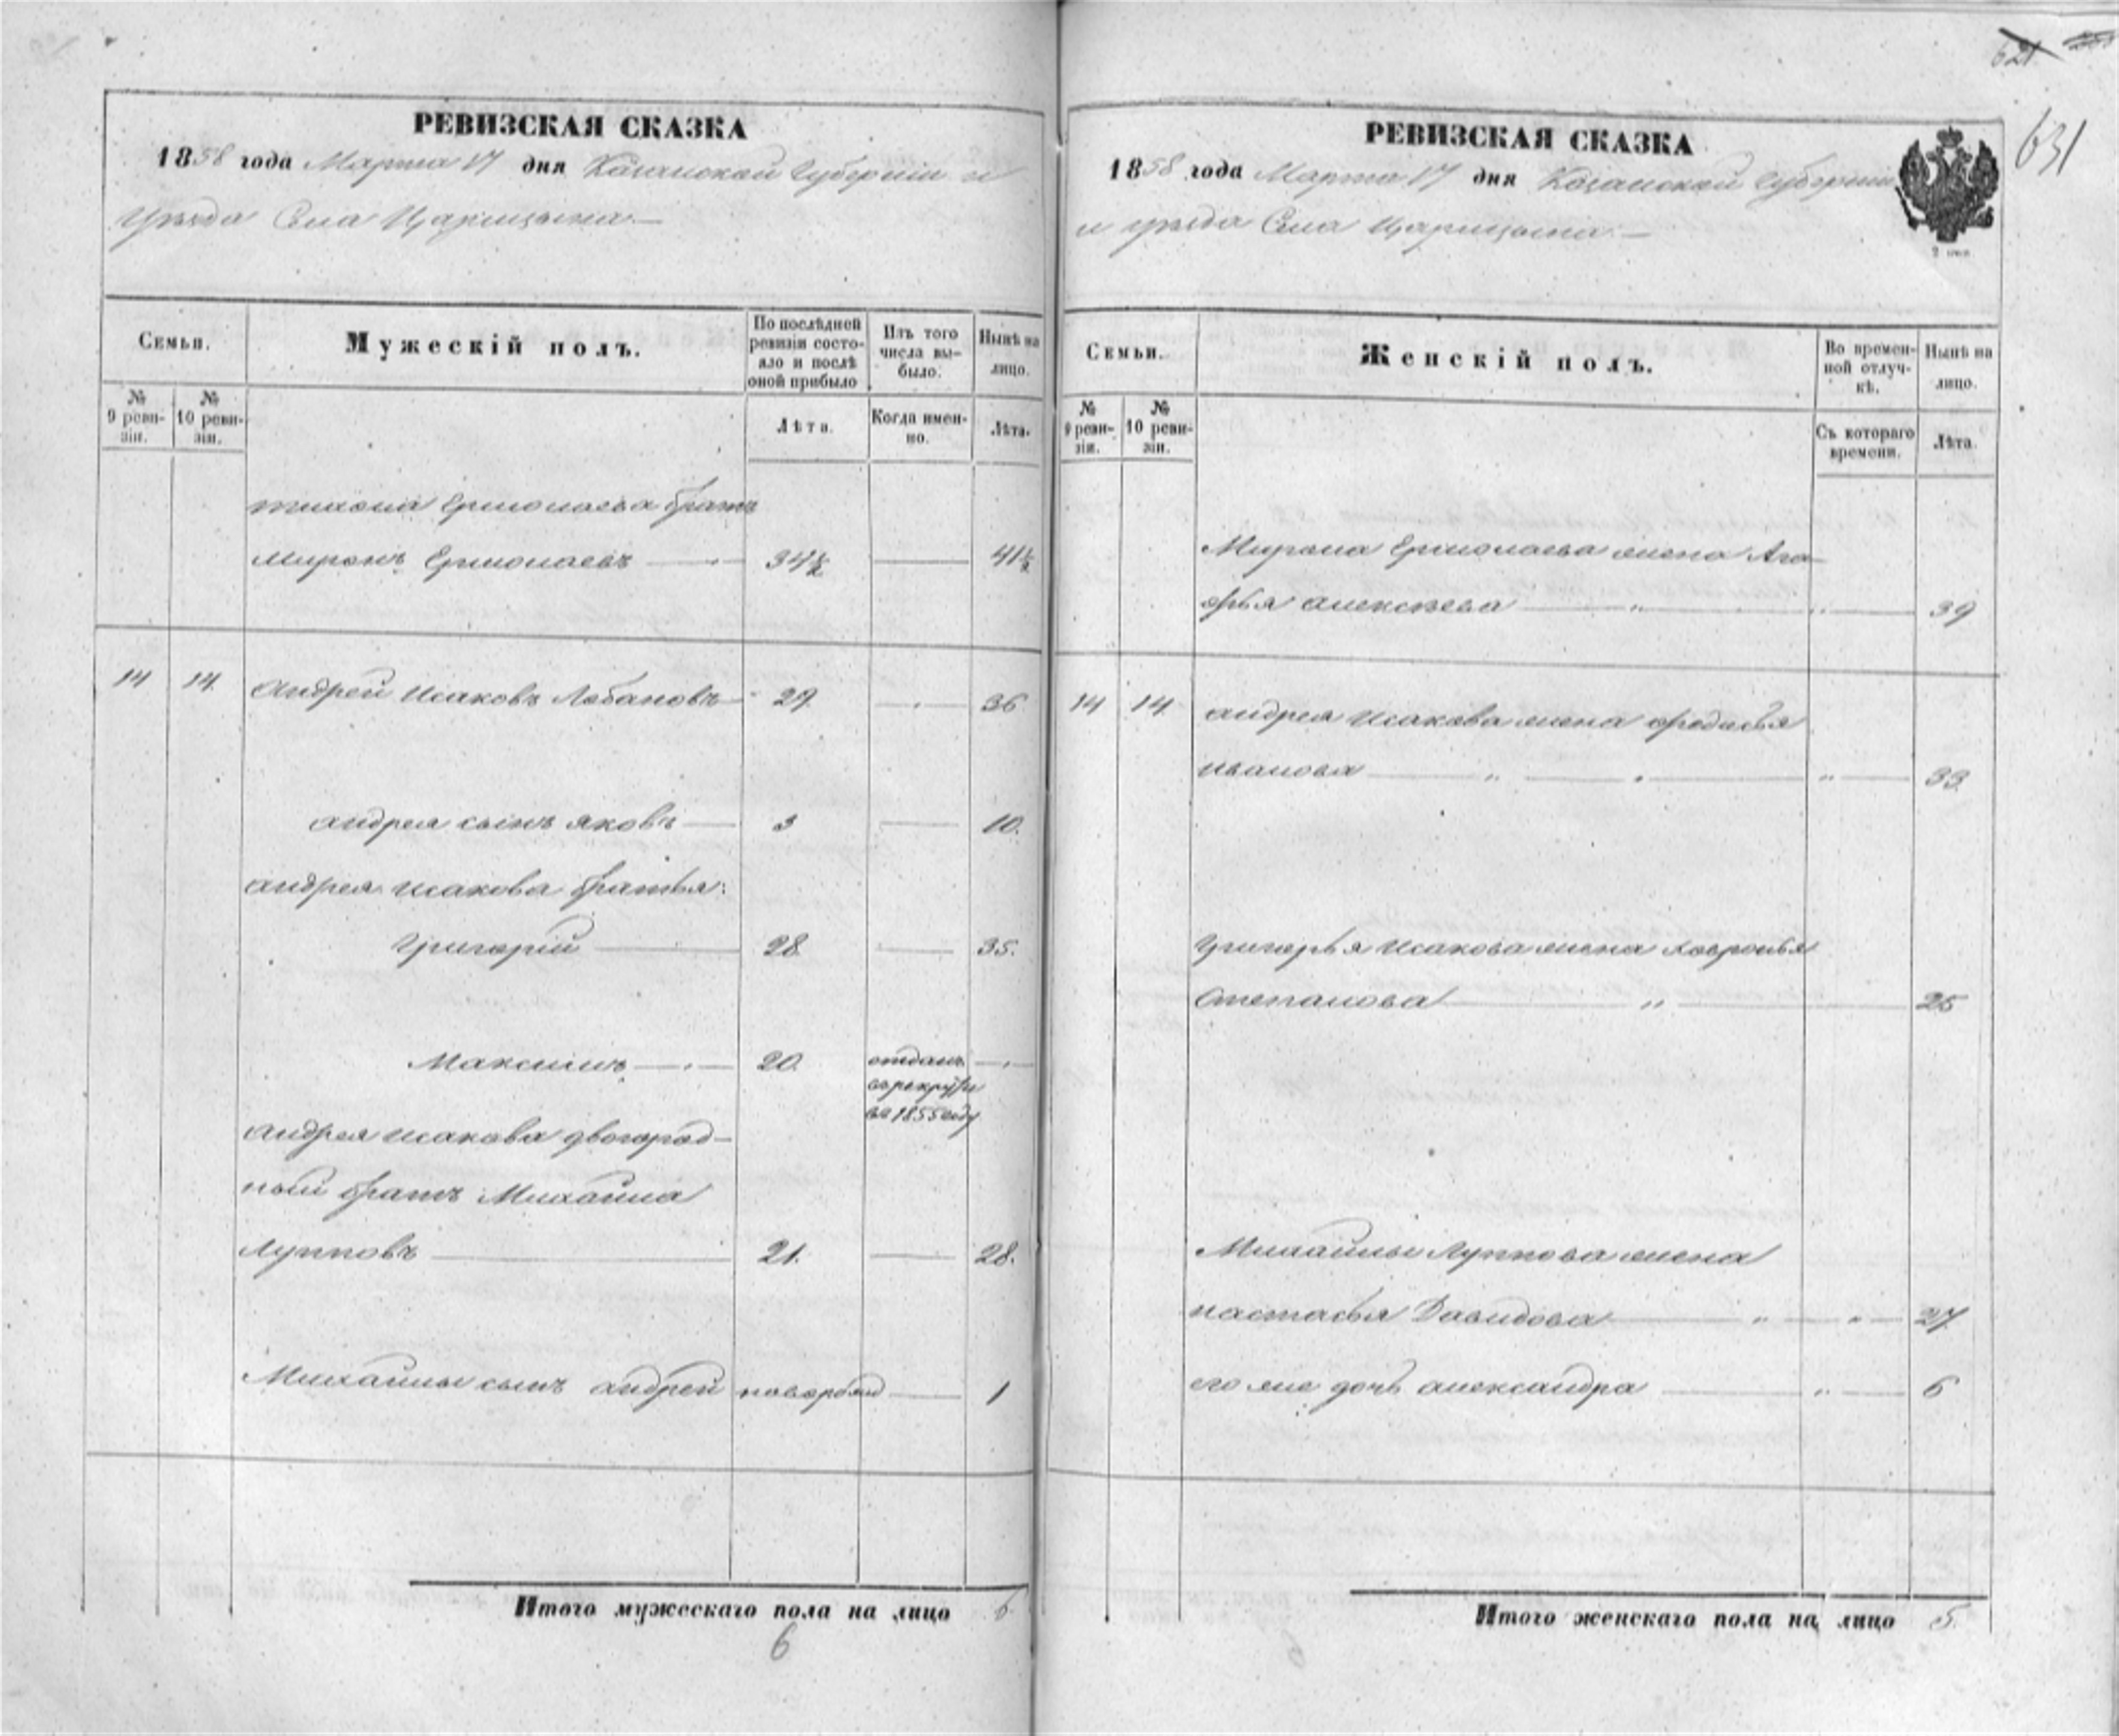 621
631
РЕВИЗСКАЯ СКАЗКА
1858 года Марта 17 дня Казанской Губернiи и
Уѣзда Села Царицына —
Семьи.
Мужескiй полъ.
По послѣдней ревизiи состояло и послѣ оной прибыло
Изъ того числа выбыло.
Нынѣ на лицо.
№ 9 ревизiи.
№ 10 ревизiи.
Лѣта.
Когда именно.
Лѣта.
тихона Ермолаева братъ
Миронъ Ермолаевъ — 34½ — 41½
14 14. Андрей Исаковъ Лобановъ 29 — 36
андрея сынъ яковъ — 3 — 10.
андрея исакова братья:
Григорiй — 28 — 35.
Максимъ — 20. отданъ —
въ рекруты
въ 1855 году
андрея исакова двоюрод-
ный братъ Михайла
Лупповъ — 21. — 28.
Михайлы сынъ андрей новорожд — 1
Итого мужескаго пола на лицо 6
6
РЕВИЗСКАЯ СКАЗКА
1858 года Марта 17 дня Казанской Губернiи
и уѣзда Села Царицына. —
Семьи.
Женскiй полъ.
Во временной отлучкѣ.
Нынѣ на лицо.
№ 9 ревизiи.
№ 10 ревизiи.
Съ котораго времени.
Лѣта.
Мирона Ермолаева жена Ага-
фья алексѣева — " — " — 39
14 14. андрея исакова жена федосья
иванова — " — " — 33
Григорья Исакова жена Хавронья
Степанова — " — 25
Михайлы Луппова жена
настасья Давидова — " — " — 27
его же дочь александра — " — 6
Итого женскаго пола на лицо 5.